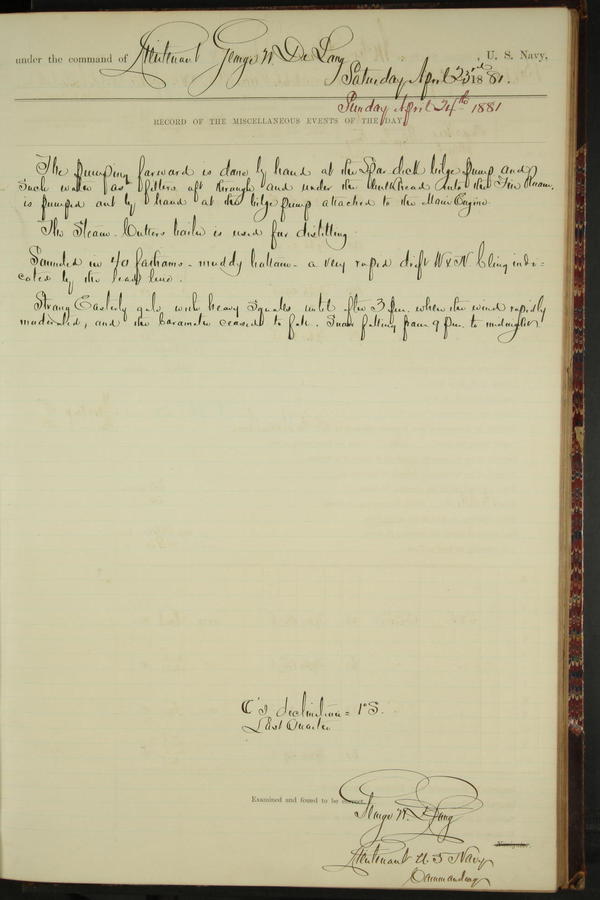 under the command of Lieutenant George W De Long , U. S. Navy,
Saturday April 23rd 1881.
Sunday April 24th 1881
RECORD OF THE MISCELLANEOUS EVENTS OF THE DAY.
The pumping forward is done by hand at the Spar deck bilge pump and
such water as filters aft through and under the bulkhead into the Fire Room,
is pumped out by hand at the bilge pump attached to the Main Engine
The Steam-Cutters boiler is used for distilling
Sounded in 40 fathoms - muddy bottom - a very rapid drift W & N being indi=
cated by the lead line.
Strong Easterly gale with heavy squalls until after 3 p.m. when the wind rapidly
moderated, and the barometer ceased to fall. Snow falling from 9 p.m. to midnight
C's declination = 1° S.
Last Quarter
Examined and found to be correct.
George W. De Long
Navigator.
Lieutenant U.S Navy
Commanding